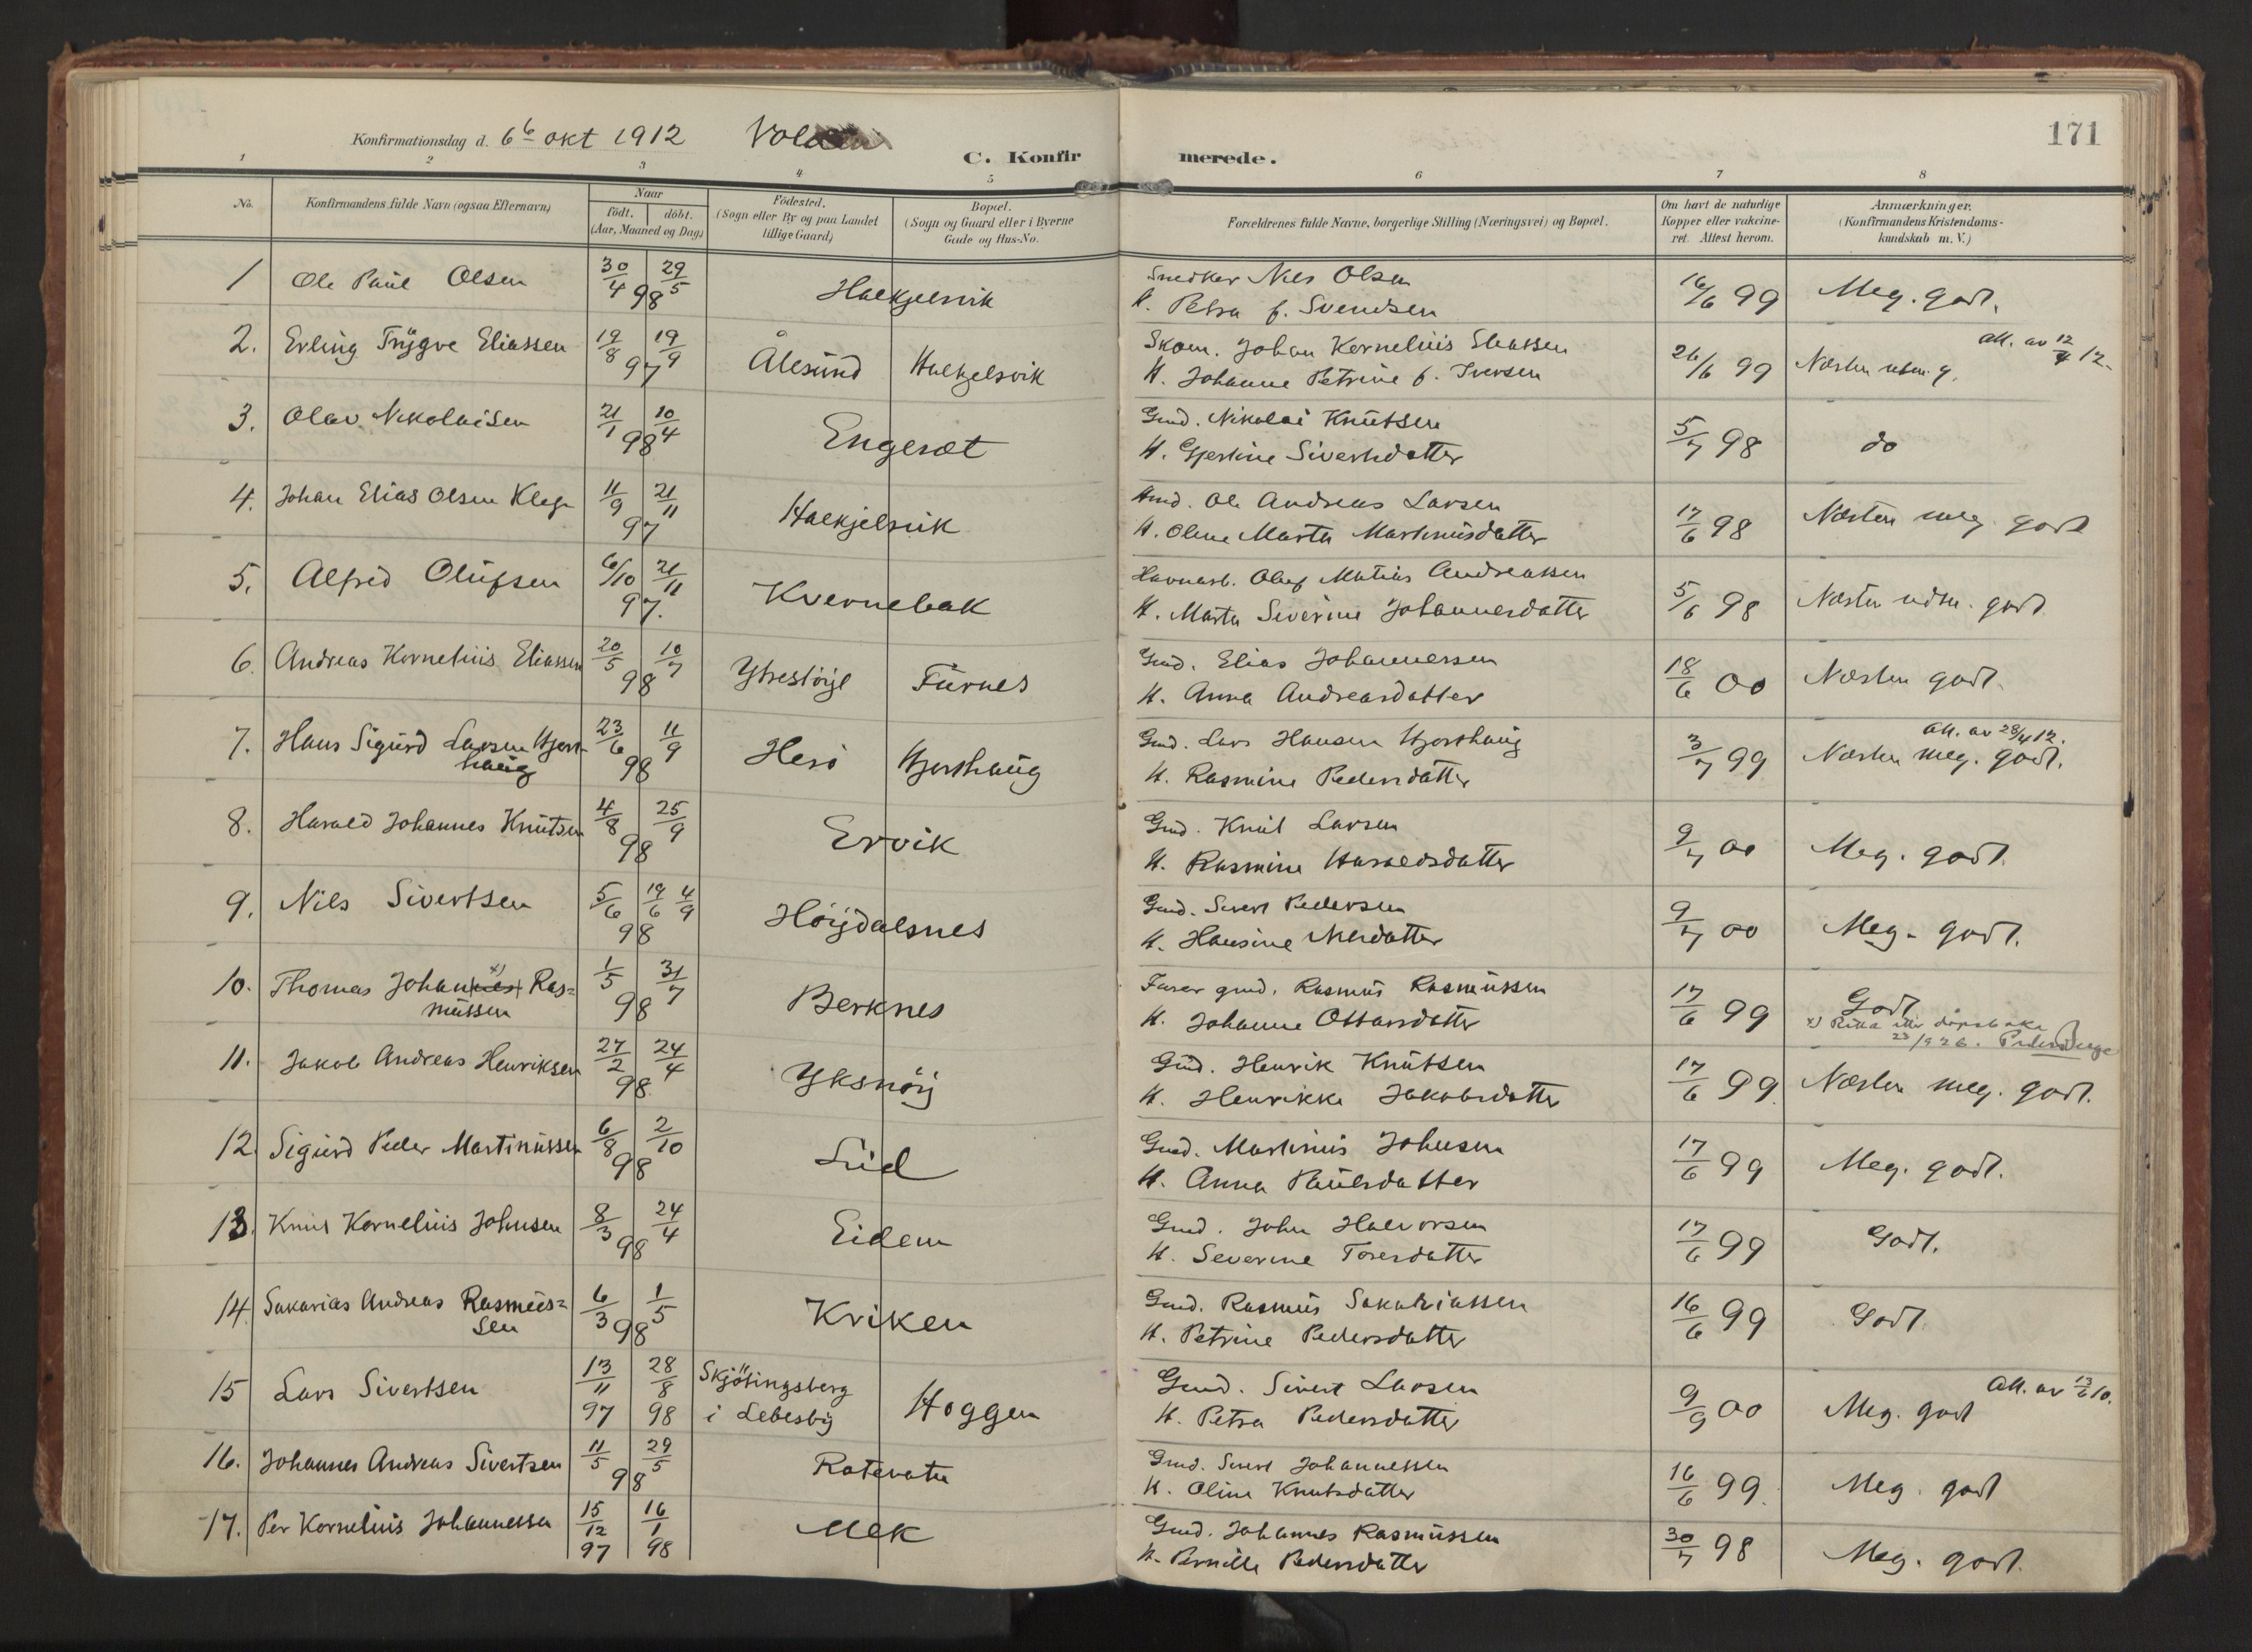 171
Konfirmationsdag d. 6 6 okt 1912 Volden
C. Konfirmerede.
1 2 3 4 5 6 7 8
No.
Konfirmandens fulde Navn (ogsaa Efternavn)
Naar
födt. döbt.
(Aar, Maaned og Dag)
Födested.
(Sogn eller By og paa Landet
tillige Gaard)
Bopæl.
(Sogn og Gaard eller i Byerne
Gade og Hus-No.
Forældrenes fulde Navne, borgerlige Stilling (Næringsvei) og Bopæl.
Om havt de naturlige
Kopper eller vakcine-
ret. Attest herom.
Anmærkninger.
(Konfirmandens Kristendoms-
kundskab m. V.)
1 Ole Paul Olsen 30/4 98 29/5 Halkjelsvik Snedker Nils Olsen 16/6 99 Meg. godt.
H. Petra f. Svendsen
2. Erling Trygve Eliassen 19/8 97 19/9 Ålesund Halkjelsvik Skom. Johan Kornelius Eliassen 26/6 99 Næsten udm. g. Att. av 12/4 12.
H. Johanne Petrine f. Iversen
3. Olav Nikolaisen 21/1 98 10/4 Engeset Gmd. Nikolai Knutsen 5/7 98 do
H. Gjertine Sivertsdatter
4. Johan Elias Olsen Klep 11/9 97 21/11 Halkjelsvik Hmd. Ole Andreas Larsen 17/6 98 Næsten meg. godt
H. Oline Marta Martinusdatter
5. Alfred Olufsen 6/10 97. 21/11 Kvernebak Havnarb. Oluf Matias Andreassen 5/6 98 Næsten udm. godt
H. Marta Severine Johannesdatter
6. Andreas Kornelius Eliassen 20/5 98 10/7 Ytrestöyl Furnes Gmd. Elias Johannessen 18/6 00 Næsten godt.
H. Anna Andreasdatter
7. Hans Sigurd Larsen Hjort- 23/6 98 11/9 Herö Hjorthaug Gmd. Lars Hansen Hjorthaug 3/7 99 Næsten meg. godt. Att. av 28/4 12.
haug H. Rasmine Pedersdatter
8. Harald Johannes Knutsen 4/8 98 25/9 Ervik Gmd. Knut Larsen 9/7 00 Meg. godt.
H. Rasmine Haraldsdatter
9. Nils Sivertsen 5/6 98 19/6 4/9 Höydalsnes Gmd. Sivert Pedersen 9/7 00 Meg. godt.
H. Hansine Nilsdatter
10. Thomas Johannes x) Ras= 1/5 98 31/7 Berknes Farer gmd. Rasmus Rasmussen 17/6 99 Godt
mussen H. Johanne Ottarsdatter
x) Retta etter dåpsboka
23/9 26.
11. Jakob Andreas Henriksen 27/2 98 24/4 Yksnöy Gmd. Henrik Knutsen 17/6 99 Næsten meg. godt.
H. Henrikke Jakobsdatter
12. Sigurd Peder Martinussen 6/8 98 2/10 Lid Gmd. Martinus Johnsen 17/6 99 Meg. godt.
H. Anna Paulsdatter
13. Knut Kornelius Johnsen 8/3 98 24/4 Eidem Gmd. John Halvorsen 17/6 99 Godt.
H. Severine Toresdatter
14. Sakarias Andreas Rasmus= 6/3 98 1/5 Kriken Gmd. Rasmus Sakariassen 16/6 99 Godt.
sen H. Petrine Pedersdatter
15 Lars Sivertsen 13/11 97 28/8 98 Skjötingsberg Hoggen Gmd. Sivert Larsen 9/9 00 Meg. godt Att. av 13/6 10.
i Lebesby H. Petra Pedersdatter
16. Johannes Andreas Sivertsen 11/5 98 29/5 Rotevatn Gmd. Sivert Johannessen 16/6 99. Meg. godt
H. Oline Knutsdatter
17. Per Kornelius Johannessen 15/12 97 16/1 98 Mek Gmd. Johannes Rasmussen 30/7 98 Meg. godt.
H. Pernille Pedersdatter